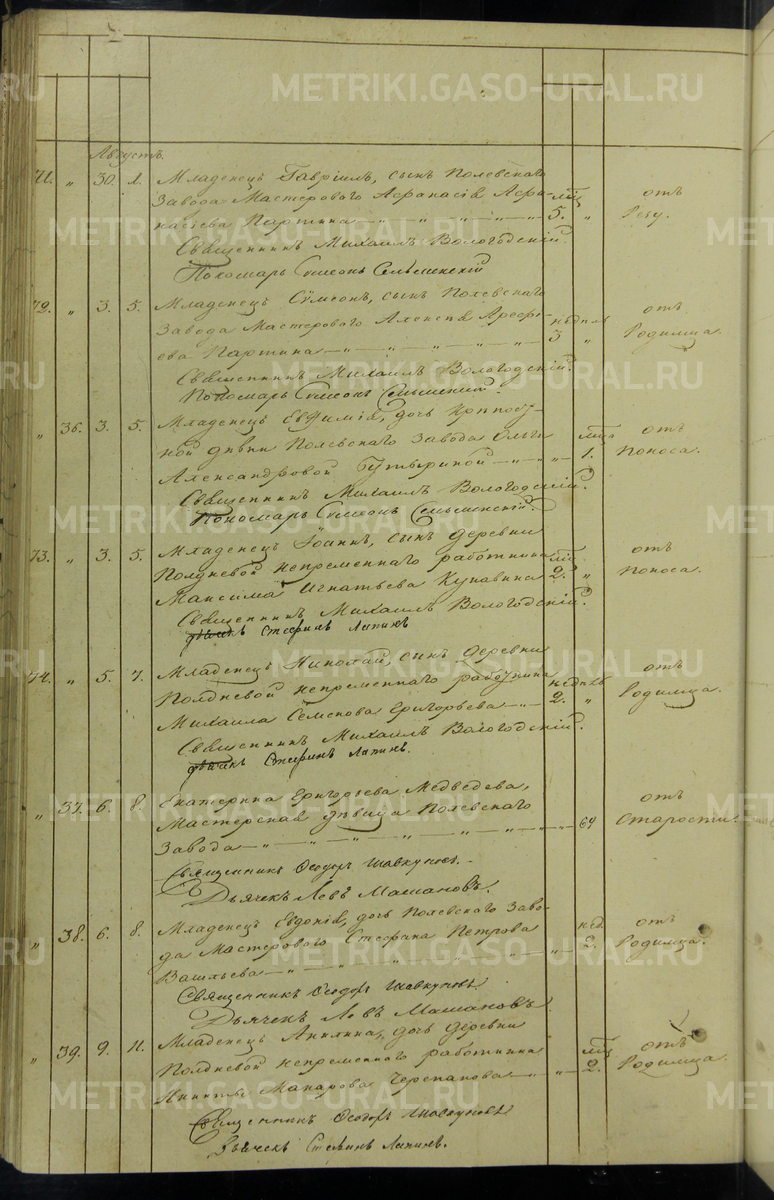 Августъ.
71. " 30. 1. Младенецъ Гавріилъ, сынъ Полевскаго
Завода Мастероваго Афанасія Афа- мѣц. отъ
насіева Паршина — " — " — " — " 5. " Резу.
Священникъ Михаилъ Вологодскій.
Пономарь Симеонъ
72. " 3. 5. Младенецъ Сѵмеонъ, сынъ Полевскаго отъ
Завода Мастероваго Алексѣя Арефі- недѣль Родимца.
ева Паршина — " — " — " — " 3 "
Священникъ Михаилъ Вологодскій.
Пономарь Симеонъ
" 36. 3. 5. Младенецъ Евѳимія, дочь Крѣпост-
ной дѣвки Полевскаго Завода Ольги мѣц. отъ
Александровой — " — " 1. Поноса.
Священникъ Михаилъ Вологодскій.
Пономарь Симеонъ
73. " 3. 5. Младенецъ Іоаннъ, сынъ деревни отъ
Полдневой непременнаго работника мѣц. Поноса.
Максима Игнатьева Кунавина 2. "
Священникъ Михаилъ Вологодскій.
дьячекъ Стефанъ Лапинъ
74. " 5. 7. Младенецъ Николай, сынъ деревни отъ
Полдневой непременнаго работника недѣль Родимца.
Михаила Семенова Григорьева — " 2. "
Священникъ Михаилъ Вологодскій.
дьячекъ Стефанъ Лапинъ.
" 37. 6. 8. Екатерина Григорьева Медведева, отъ
Мастерская дѣвица Полевскаго Старости.
Завода — " — " — " — " — " — " 64
Священникъ Ѳеодоръ Шавкуновъ.
Дьячекъ Левъ Машановъ.
" 38. 6. 8. Младенецъ Евдокія, дочь Полевскаго Заво- нед. отъ
да Мастероваго Стефана Петрова 2. Родимца.
Васильева — " — " — " — "
Священникъ Ѳеодоръ Шавкуновъ
Дьячекъ Левъ Машановъ.
" 39. 9. 11. Младенецъ Акилина, дочь деревни отъ
Полдневой непременнаго работника мѣц. Родимца.
Никиты Макарова Черепанова — " — " 2.
Священникъ Ѳеодоръ Шавкуновъ
Дьячекъ Стефанъ Лапинъ.
METRIKI.GASO-URAL.RU